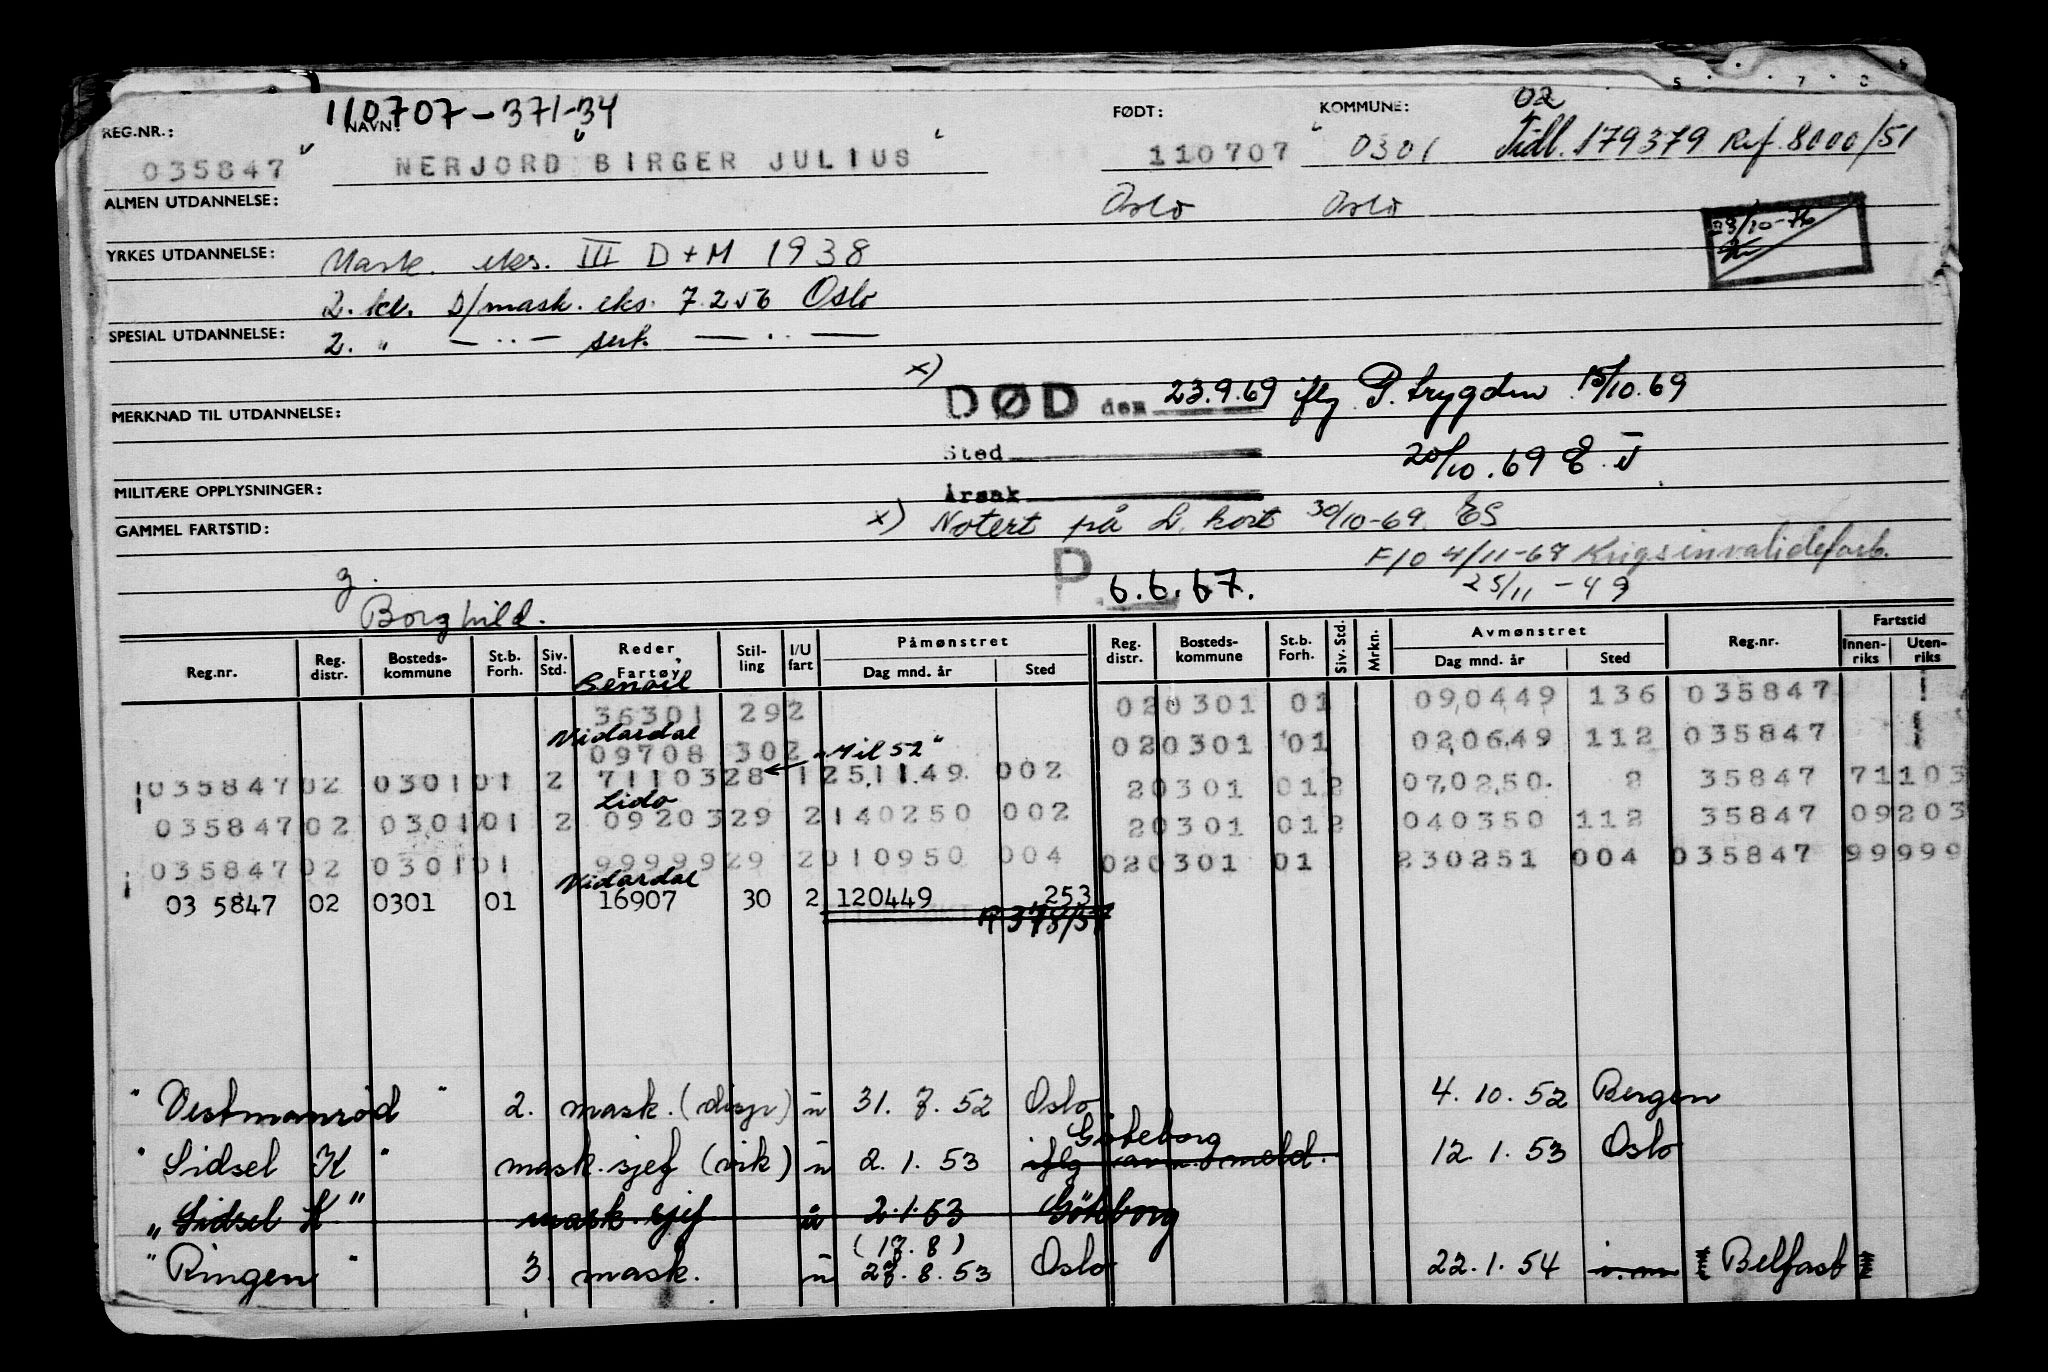 110707-371-34
REG.NR.: NAVN: FØDT: KOMMUNE: 02
035847 " NERJORD " BIRGER JULIUS " 110707 " 0301 Tidl. 179379 Ref. 8000/51
ALMEN UTDANNELSE: Oslo Oslo
YRKES UTDANNELSE: Mask. eks. III D + M 1938
2. kl. D/mask. eks. 7.2 56 Oslo
SPESIAL UTDANNELSE: 2. " — .. — sert. — .. —
x)
DØD den 23.9.69 iflg P. trygden 15/10.69
MERKNAD TIL UTDANNELSE:
Sted 20/10.69
MILITÆRE OPPLYSNINGER: Årsak
x) Notert på L. kort 30/10-69 ES
GAMMEL FARTSTID: F/O 4/11-68 Krigsinvalideforb.
g. P. 6.6.67. 25/11-49
Borghild.
Reg.nr. Reg. distr. Bosteds-kommune St.b. Forh. Siv. Std. Reder Fartøy Stil-ling I/U fart Påmønstret Dag mnd. år Sted Reg. distr. Bosteds-kommune St.b. Forh. Siv. Std. Mrkn. Avmønstret Dag mnd. år Sted Reg.nr. Fartstid Innen-riks Uten-riks
Benoil
36301 292 020301 01 090449 136 035847
Vidardal
09708 302 "Mil 52" 020301 01 020649 112 035847
035847 02 0301 01 2 71103 28 1 251149 002 20301 012 070250 2 35847 71103
Lido
035847 02 0301 01 2 09203 29 2 140250 002 20301 012 040350 112 35847 09203
035847 02 0301 01 99999 29 2 010950 004 020301 01 230251 004 035847 99999
Vidardal
03 5847 02 0301 01 16907 30 2 120449 253
R 378/57
" Vestmanrød " 2. mask. (disp) u 31.7.52 Oslo 4.10.52 Bergen
Göteborg
" Sidsel K " mask. sjef (vik) u 2.1.53 iflg avm. meld. 12.1.53 Oslo
" Sidsel K " mask. sjef u 2.1.53 Göteborg
(17.8)
" Ringen " 3. mask. u 27.8.53 Oslo 22.1.54 Belfast